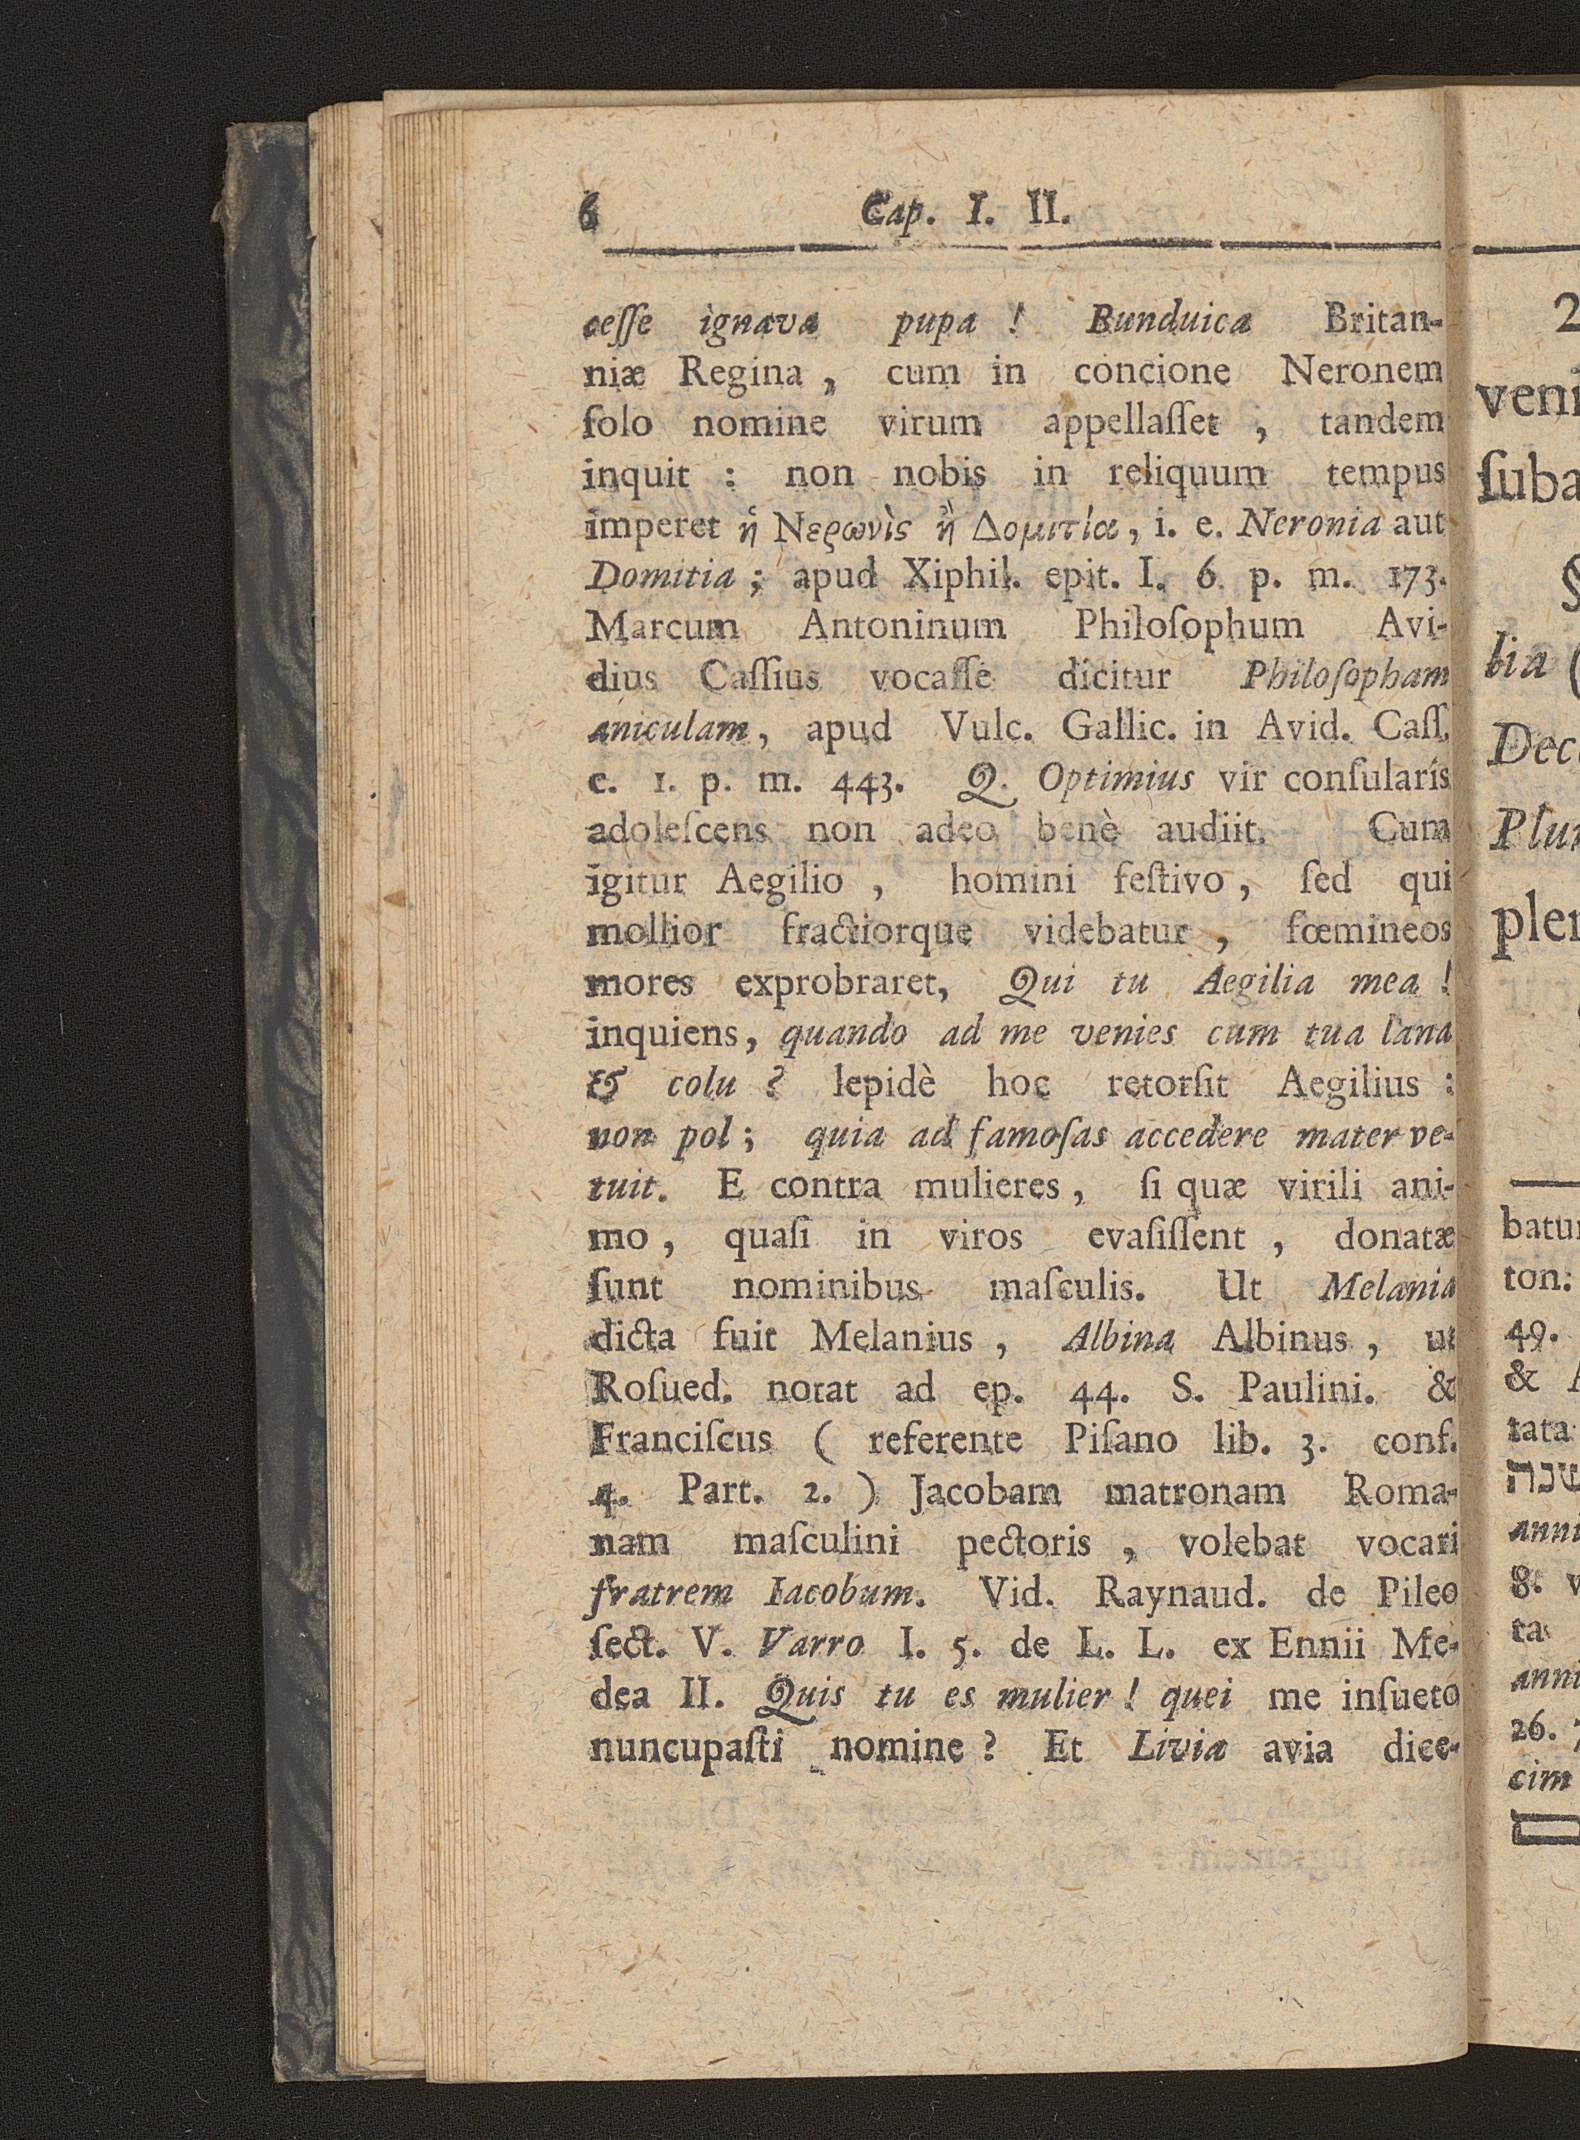 6 Cap. I. II.
cesse ignava pupa ! Bunduica Britan-
niæ Regina , cum in concione Neronem
ſolo nomine virum appellaſſet , tandem
inquit : non nobis in reliquum tempus
imperet ἡ Νερωνὶς ἢ Δομιτία, i. e. Neronia aut
Domitia ; apud Xiphil. epit. I. 6. p. m. 173.
Marcum Antoninum Philoſophum Avi-
dius Caſſius vocaſſe dicitur Philoſopham
aniculam, apud Vulc. Gallic. in Avid. Caſſ.
c. 1. p. m. 443. Q. Optimius vir conſularis
adoleſcens non adeo benè audiit. Cum
igitur Aegilio , homini feſtivo, ſed qui
mollior fractiorque videbatur , fœmineos
mores exprobraret, Qui tu Aegilia mea !
inquiens, quando ad me venies cum tua lana
& colu ? lepidè hoc retorſit Aegilius :
non pol ; quia ad famoſas accedere mater ve-
tuit. E contra mulieres , ſi quæ virili ani-
mo , quaſi in viros evaſiſſent , donatæ
ſunt nominibus maſculis. Ut Melania
dicta fuit Melanius , Albina Albinus , ut
Roſued. notat ad ep. 44. S. Paulini. &
Franciſcus ( referente Piſano lib. 3. conf.
4. Part. 2. ) Jacobam matronam Roma-
nam maſculini pectoris , volebat vocari
fratrem Iacobum. Vid. Raynaud. de Pileo
ſect. V. Varro I. 5. de L. L. ex Ennii Me-
dea II. Quis tu es mulier ! quei me inſueto
nuncupaſti nomine ? Et Livia avia dice-
2
veni
ſuba
§
lia (
Dec
Plu
plen
batur
ton:
49.
&
tata
שנה
anni
8. v
ta
anni
26. 7
cim